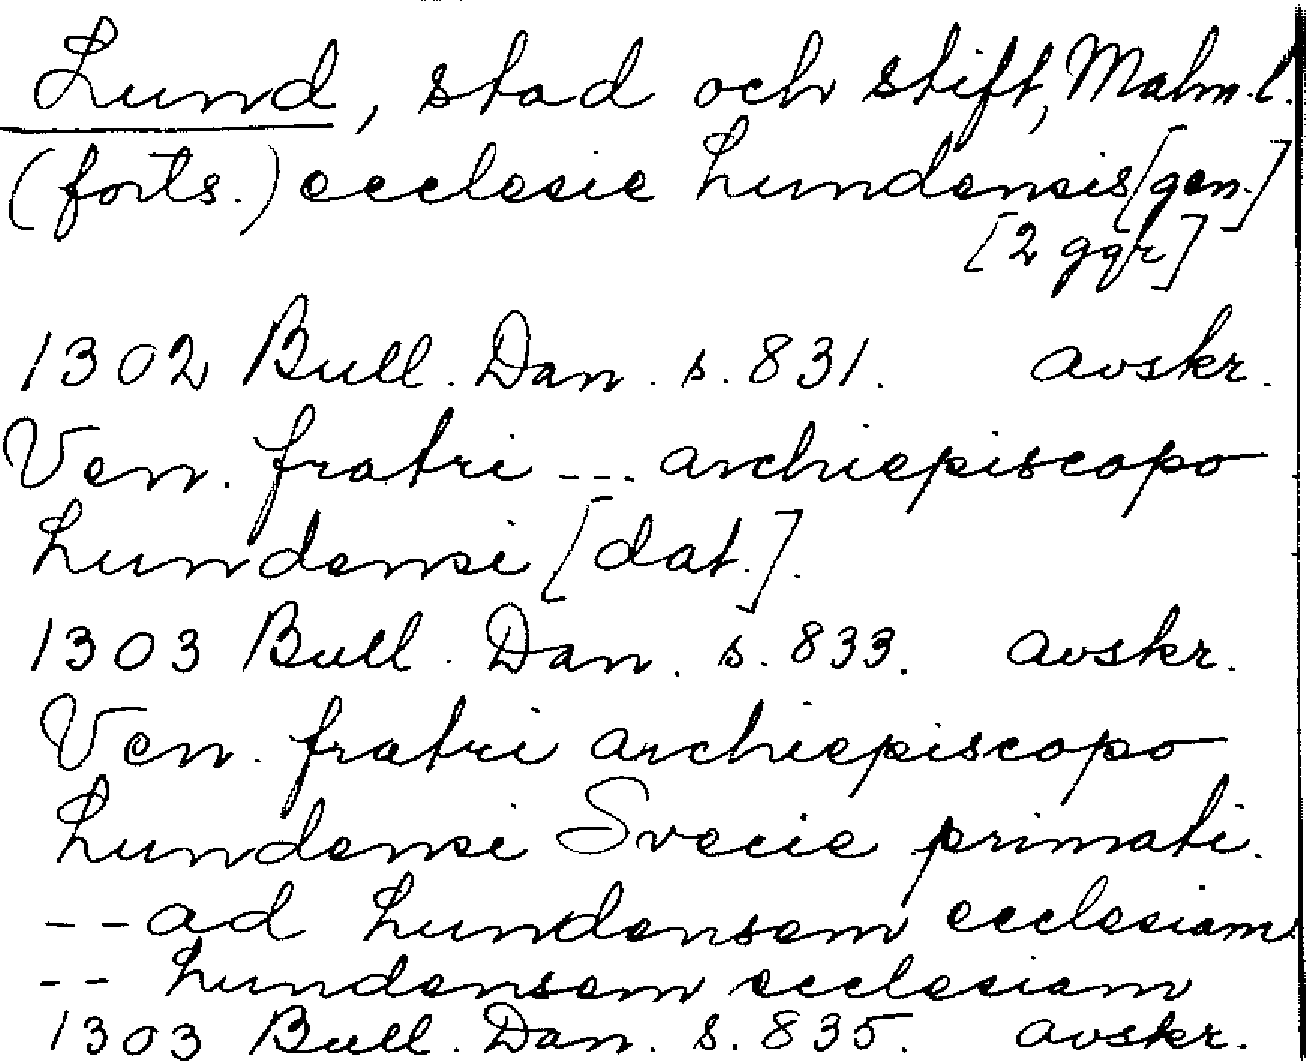 Lund, stad och stift, Malm.l.
(forts.) ecclesie Lundensis [gen.]
[2 ggr]
1302 Bull. Dan. s. 831. avskr.
Ven. fratri --- archiepiscopo
Lundensi [dat.].
1303 Bull. Dan. s. 833. avskr.
Ven. fratri archiepiscopo
Lundensi Svecie primati.
-- ad Lundensem ecclesiam
-- Lundensem ecclesiam
1303 Bull. Dan. s. 835. avskr.